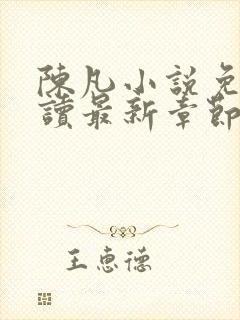 陳凡小説免
讀最新章節
王惠德